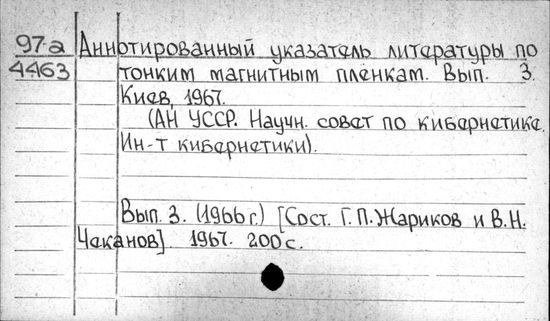 97-а Аннотированный указатель литературы по
4463 тонким магнитным пленкам. Вып. 3.
Киев, 1967.
(АН УССР. Научн. совет по кибернетике.
Ин-т кибернетики).
Вып. 3. (1966 г.) [Сост. Г.П. Жариков и В.Н.
Чаканов]. 1967. 200 с.